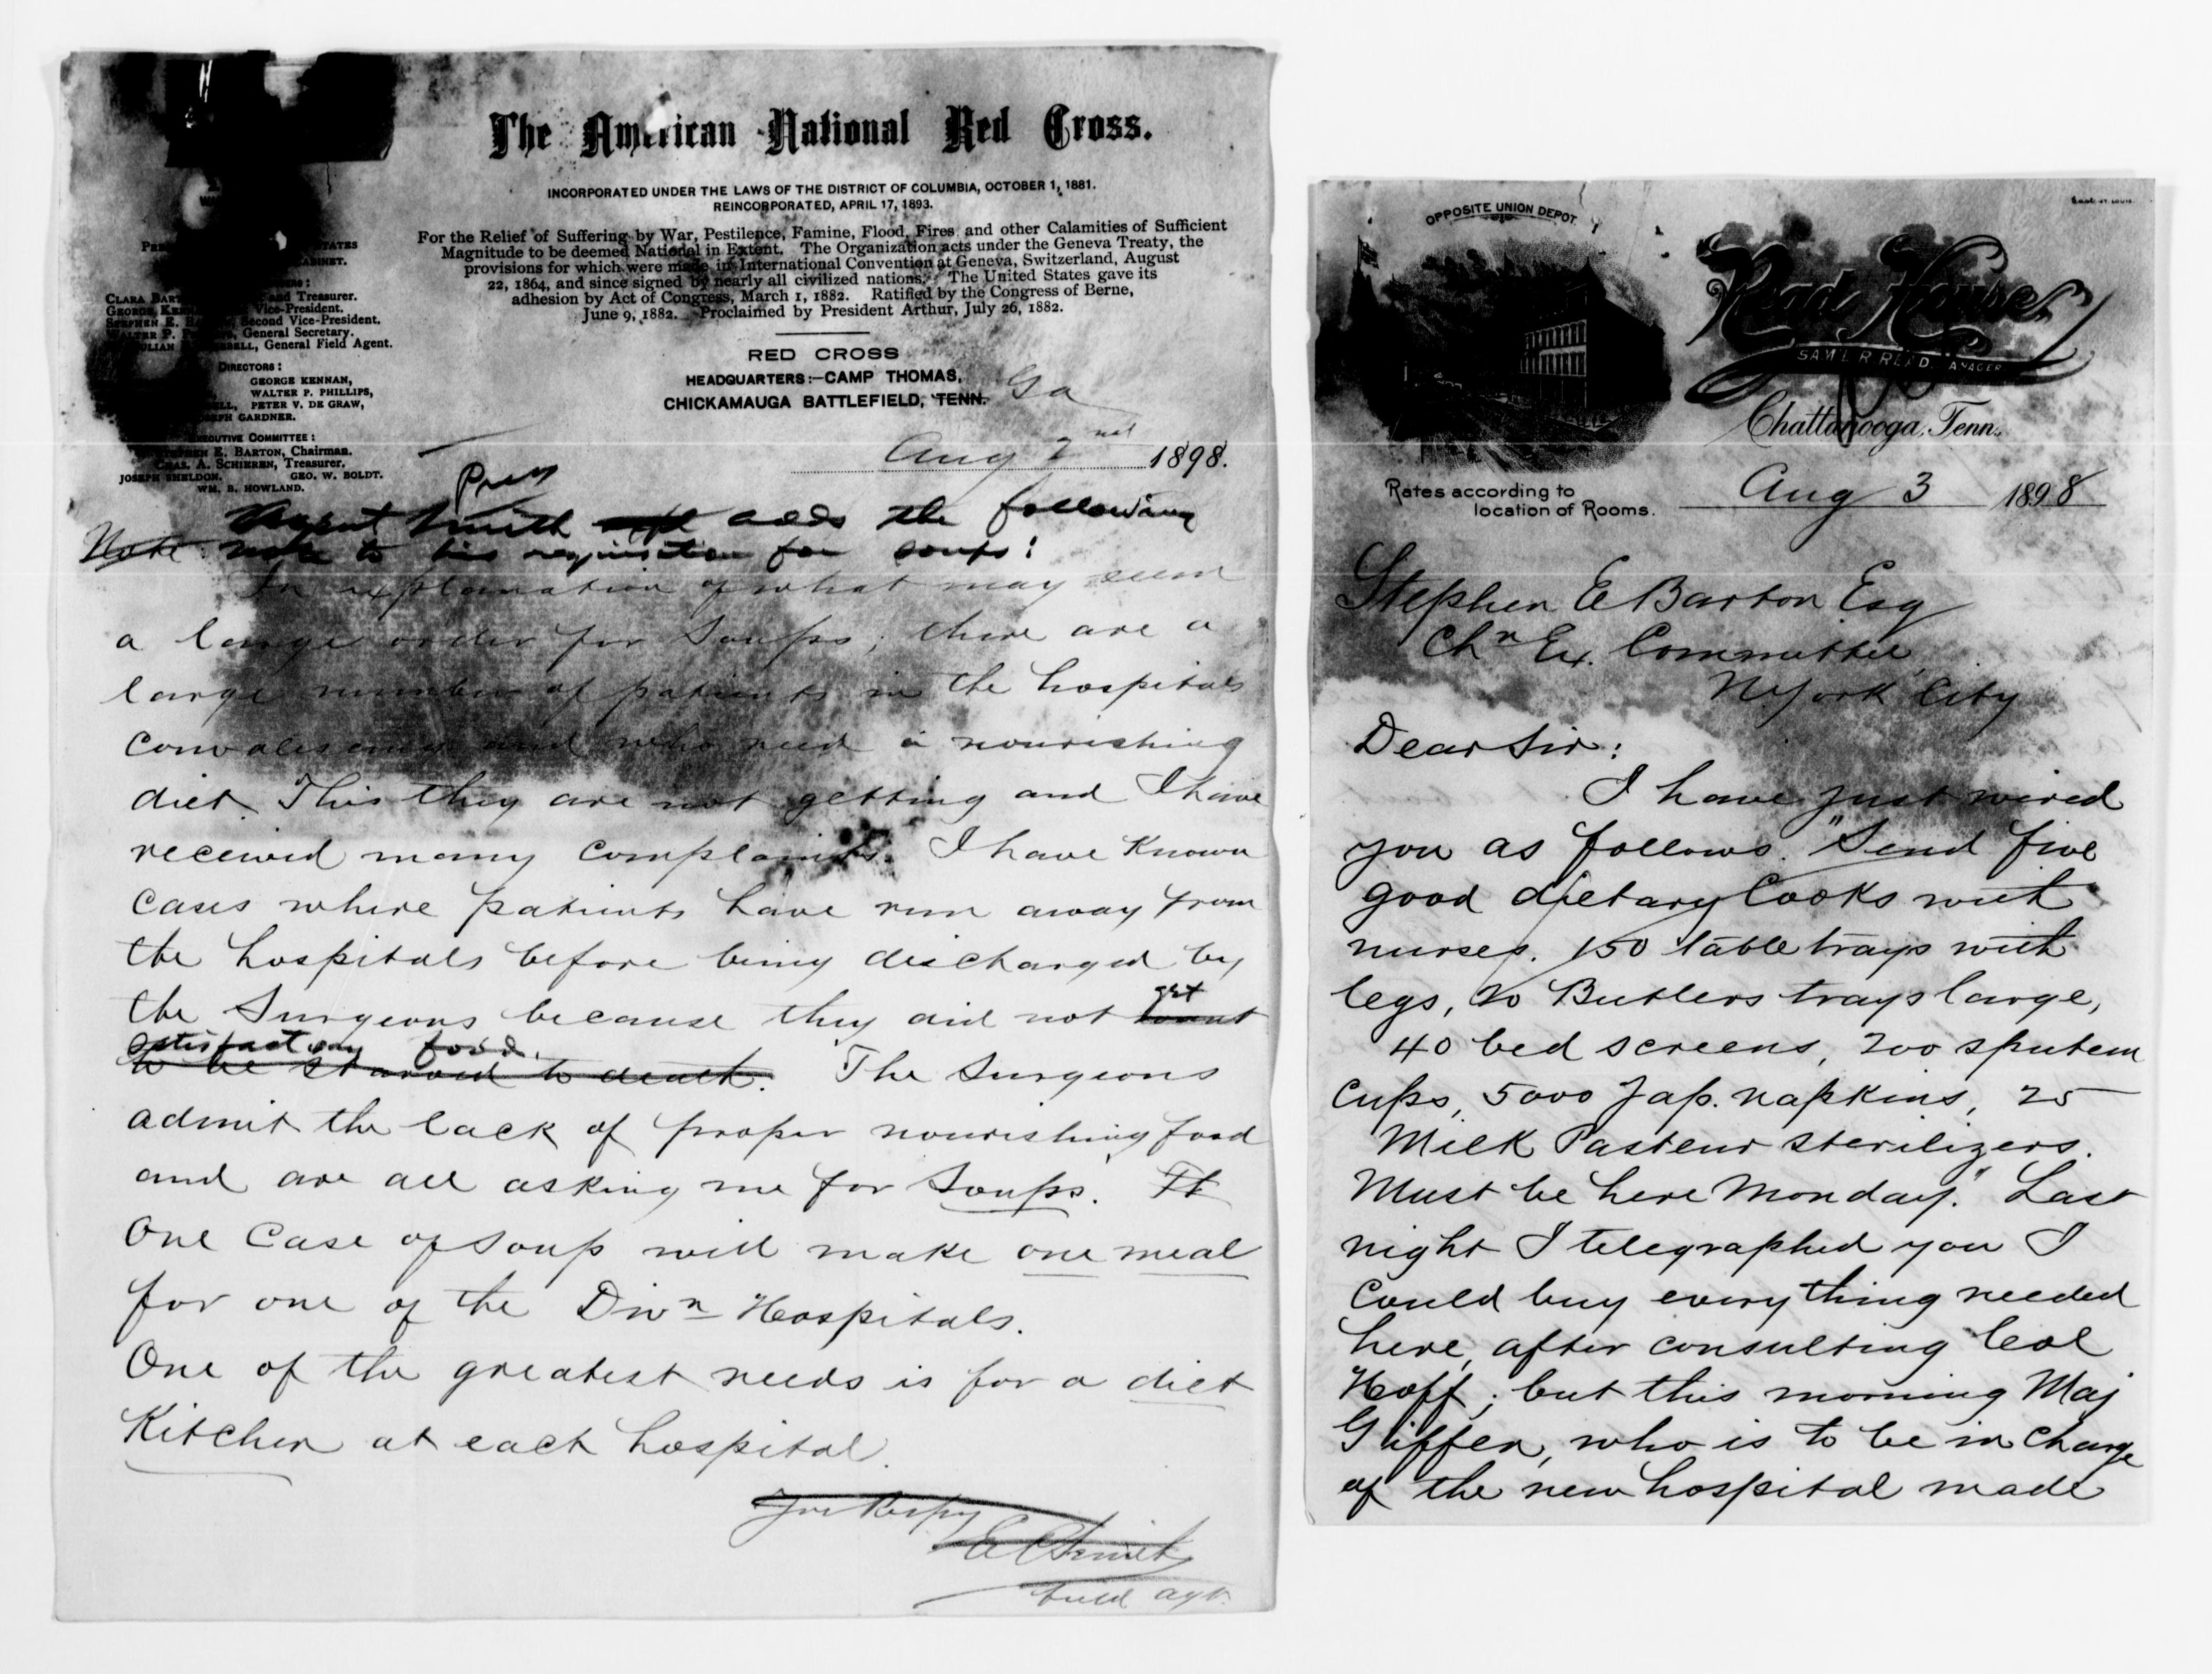 The American National Red Cross.
INCORPORATED UNDER THE LAWS OF THE DISTRICT OF COLUMBIA, OCTOBER 1, 1881.
REINCORPORATED, APRIL 17, 1893.
For the Relief of Suffering by War, Pestilence, Famine, Flood, Fires and other Calamities of Sufficient
Magnitude to be deemed National in Extent. The Organization acts under the Geneva Treaty, the
provisions for which were made in International Convention at Geneva, Switzerland, August
22, 1864, and since signed by nearly all civilized nations. The United States gave its
adhesion by Act of Congress, March 1, 1882. Ratified by the Congress of Berne,
June 9, 1882. Proclaimed by President Arthur, July 26, 1882.
CLARA BART and Treasurer.
GEORGE Vice-President.
STEPHEN E. Second Vice-President.
WALTER P. General Secretary.
General Field Agent.
DIRECTORS:
GEORGE KENNAN,
WALTER P. PHILLIPS,
PETER V. DE GRAW,
GARDNER.
EXECUTIVE COMMITTEE:
STEPHEN E. BARTON, Chairman.
CHAS. A. SCHIEREN, Treasurer.
JOSEPH SHELDON. GEO. W. BOLDT.
WM. B. HOWLAND.
RED CROSS
HEADQUARTERS:—CAMP THOMAS,
CHICKAMAUGA BATTLEFIELD, TENN. Ga
Aug 2nd 1898.
Agent Smith adds the following
Note note to his requisition for soups:
In explanation of what may seem
a large order for Soups; there are a
large number of patients in the hospitals
convalescing and who need a nourishing
diet. This they are not getting and I have
received many complaints. I have Known
cases where patients have run away from
the hospitals before being discharged by
the Surgeons because they did not want get
satisfactory food.
to be starved to death. The Surgeons
admit the lack of proper nourishing food
and are all asking me for Soups. It
One Case of Soup will make one meal
for one of the Divn Hospitals.
One of the greatest needs is for a diet
Kitchen at each hospital.
E C Smith
Field agt.
OPPOSITE UNION DEPOT
Read House
SAM'L R READ, MANAGER
Chattanooga, Tenn.
Rates according to
location of Rooms.
Aug 3 1898
Stephen E Barton Esq
Chn Ex. Committee
N. York City
Dear Sir:
I have just wired
you as follows. "Send five
good dietary Cooks with
nurses. 150 table trays with
legs, 20 Butlers trays large,
40 bed screens, 200 sputem
Cups, 5000 Jap. napkins, 25
Milk Pasteur sterilizers.
Must be here Monday." Last
night I telegraphed you I
could buy everything needed
here, after consulting Col
Hoff; but this morning Maj
Giffen, who is to be in charge
of the new hospital made